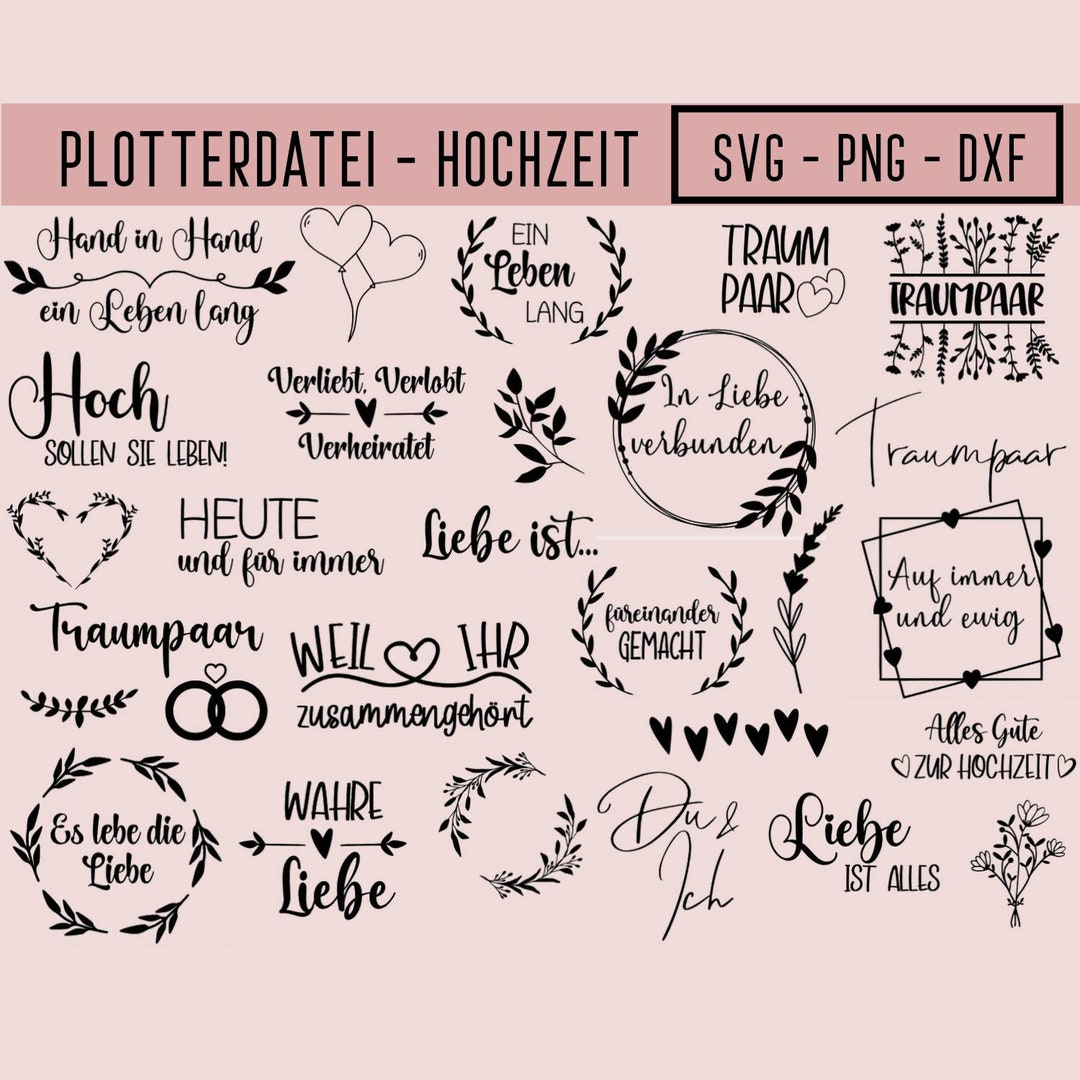 PLOTTERDATEI - HOCHZEIT
SVG - PNG - DXF
Hand in Hand
ein Leben lang
EIN
Leben
LANG
TRAUM
PAAR
TRAUMPAAR
Hoch
SOLLEN SIE LEBEN!
Verliebt, Verlobt
Verheiratet
In Liebe
verbunden
Traumpaar
HEUTE
und für immer
Liebe ist...
füreinander
GEMACHT
Auf immer
und ewig
Traumpaar
WEIL IHR
zusammengehört
Alles Gute
ZUR HOCHZEIT
Es lebe die
Liebe
WAHRE
Liebe
Du &
Ich
Liebe
IST ALLES